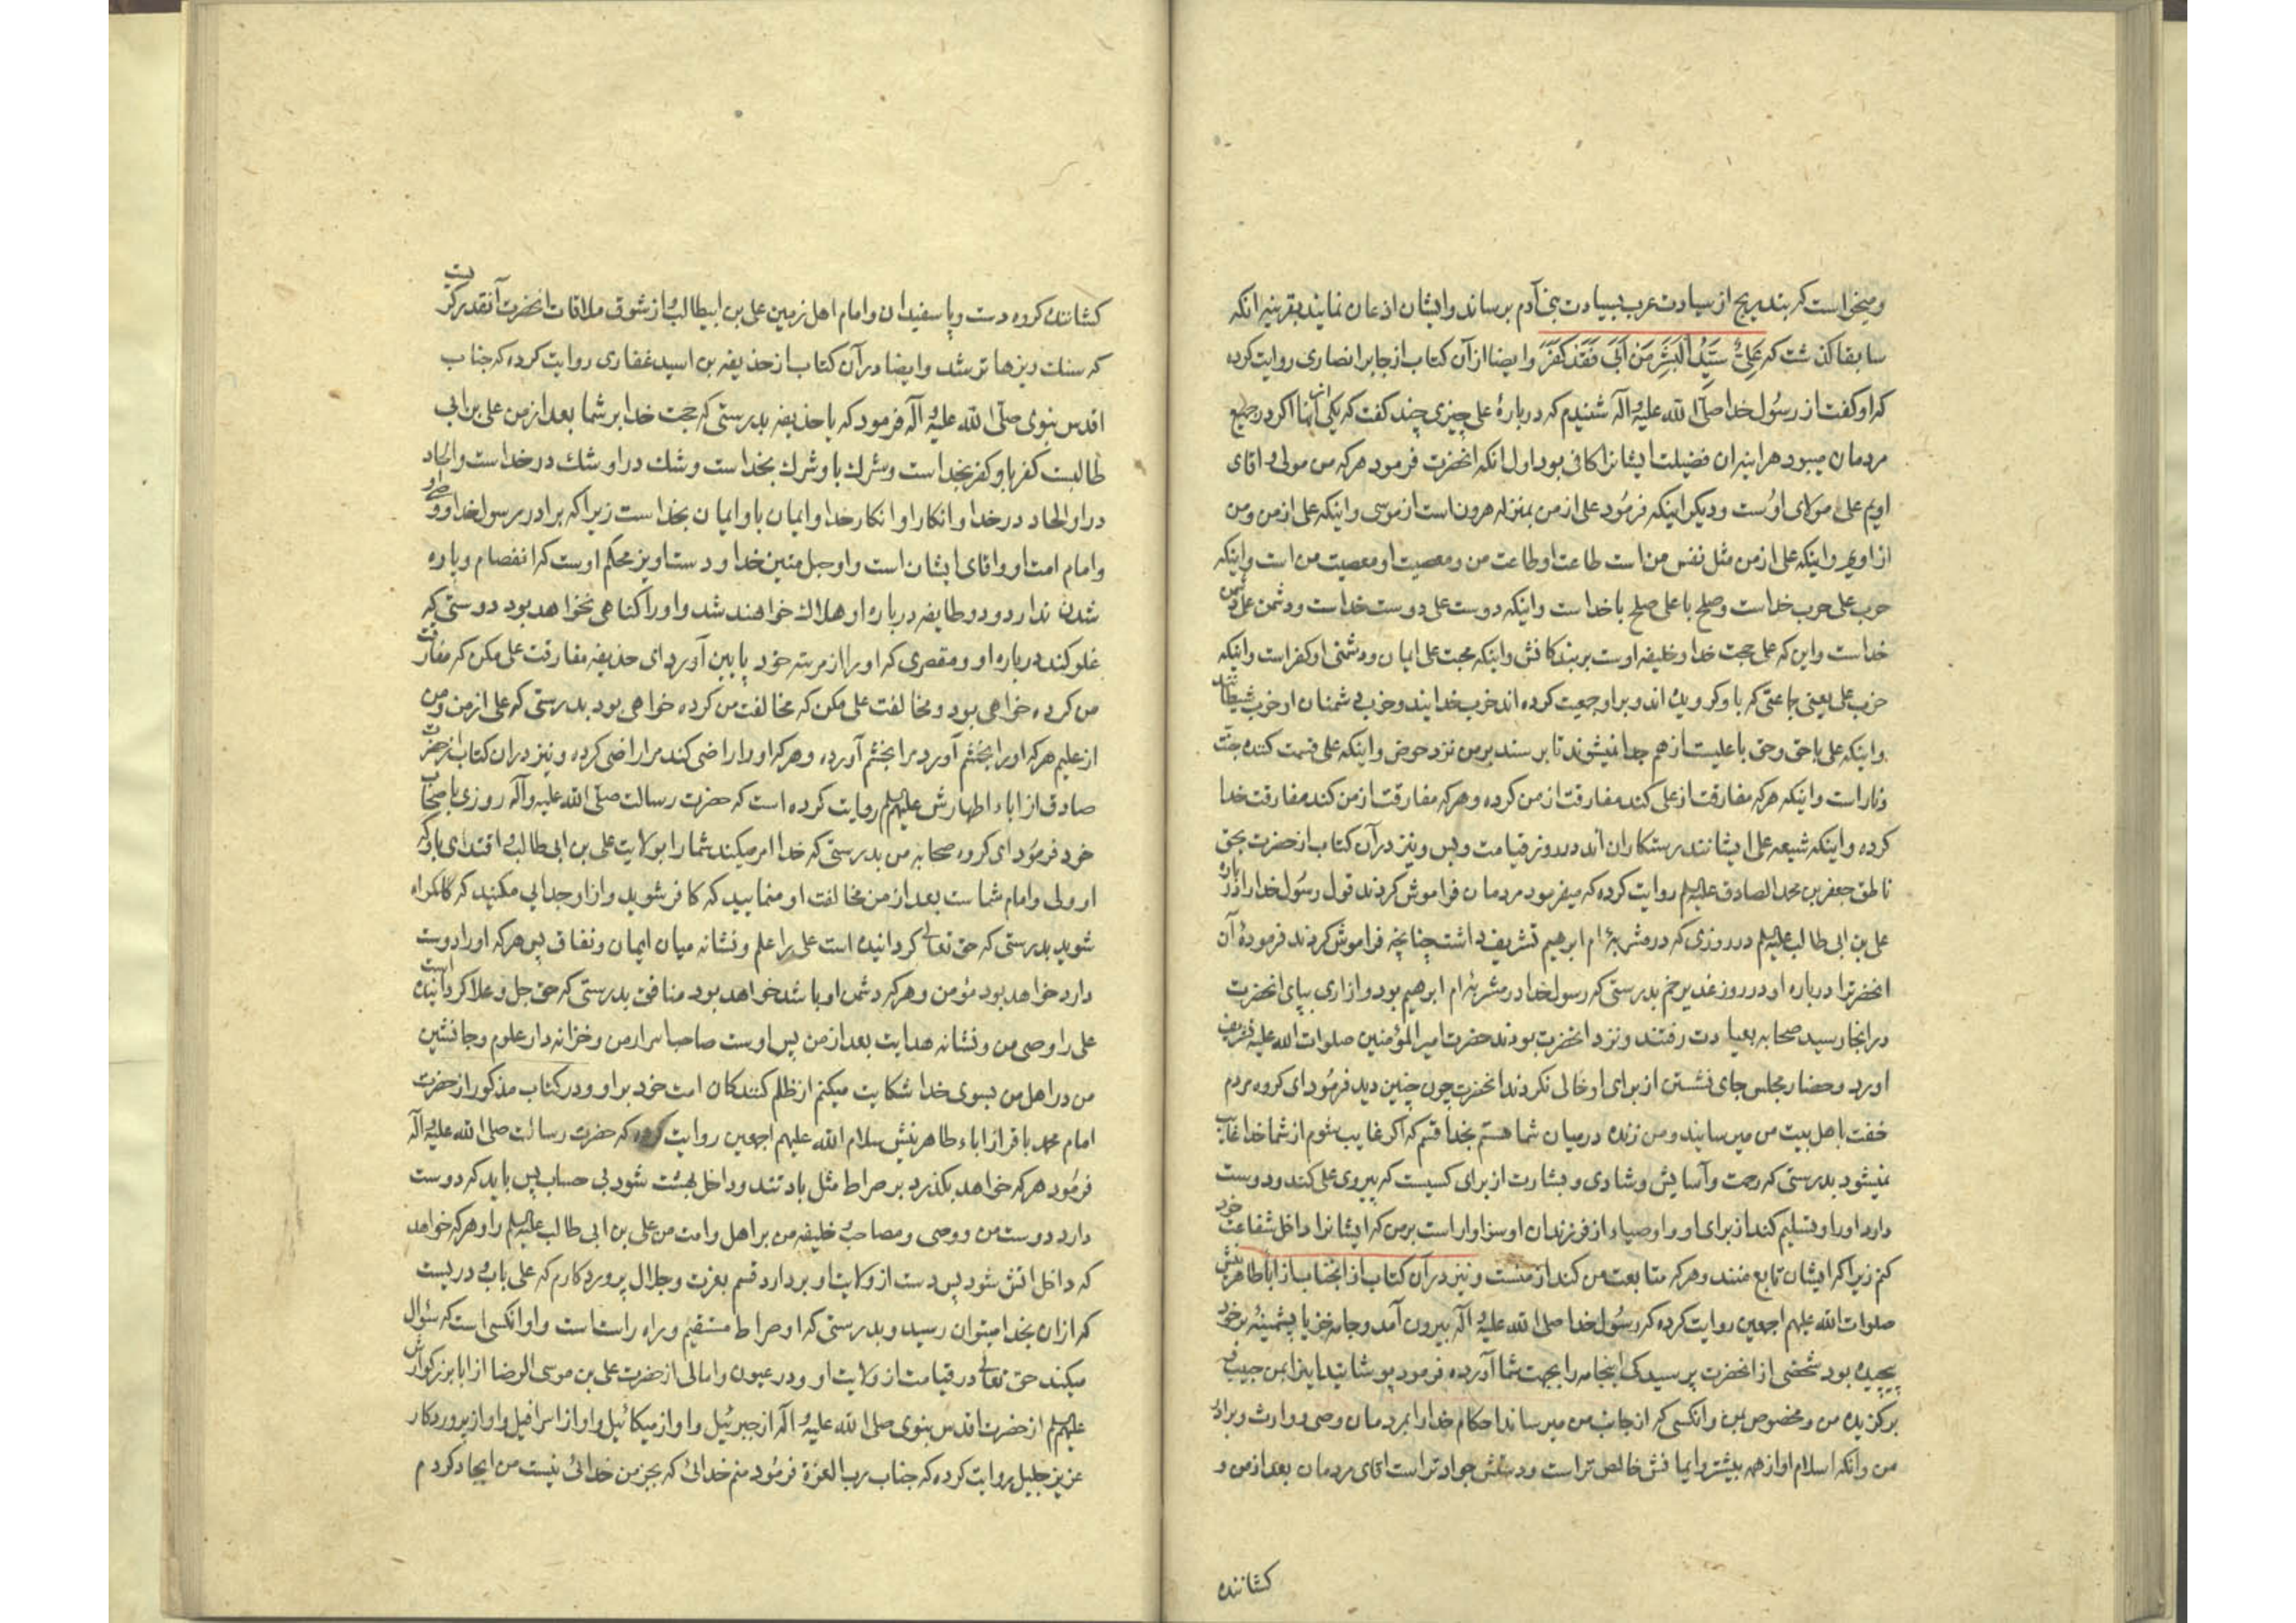 ومیخواست که بتدریج از سیادت عرب بسیادت بنی آدم برساند و ایشان اذعان نمایند بقرینه انکه
سابقا کذشت که عَلِیٌّ سَیِّدُ الْبَشَرِ مَنْ اَبٰی فَقَدْ کَفَرَ و ایضا از آن کتاب از جابر انصاری روایت کرده
که او کفت از رسُول خدا صلّی الله علیه و آله شنیدم که دربارهٔ علی چیزی چند کفت که یکی از آنها اکر در جمیع
مردمان میبود هر اینه ان فضیلت ایشانرا کافی بود اول انکه انحضرت فرمود هر که من مولی و اقای
اویم علی مولای اوُست و دیکر اینکه فرمُود علی از من بمنزله هرون است از موسی و اینکه علی از من و من
از اویم و اینکه علی از من مثل نفس من است طاعت او طاعت من و معصیت او معصیت من است و اینکه
حرب علی حرب خداست و صلح با علی صلح با خدا است و اینکه دوست علی دوست خداست و دشمن علی دشمن
خداست و این که علی حجت خدا و خلیفه اوست بر بندکانش و اینکه محبت علی ایمان و دشمنی او کفر است و اینکه
حزب علی یعنی جماعتی که باو کرویده اند و بر او جمعیت کرده اند حزب خدایند و حزب دشمنان او حزب شیطانند
و اینکه علی با حق و حق با علیست از هم جدا نمیشوند تا برسند بر من نزد حوض و اینکه علی قسمت کننده جنّت
و نار است و اینکه هر که مفارقت از علی کند مفارقت از من کرده و هر که مفارقت از من کند مفارقت خدا
کرده و اینکه شیعه علی ایشانند رستکاران اند در روز قیامت و بس و نیز در آن کتاب از حضرت بحق
ناطق جعفر بن محمد الصادق علیه السلم روایت کرده که میفرمود مردمان فراموش کردند قول رسُول خدا را در باره
علی بن ابی طالب علیه السلم در روزی که در مشربهٔ ام ابرهیم تشریف داشت چنانچه فراموش کردند فرمودهٔ آن
انحضرترا درباره او در روز غدیر خم بدرستی که رسول خدا در مشربهٔ ام ابرهیم بود و ازاری بپای انحضرت
در انجا رسید صحابه بعیادت رفتند و نزد انحضرت بودند حضرت امیر المؤمنین صلوات الله علیه تشریف
اورد و حضار مجلس جای نشستن از برای او خالی نکردند انحضرت چون چنین دید فرمُود ای کروه مردم
خفت باهل بیت من میرسانید و من زنده درمیان شما هستم بخدا قسم که اکر غایب شوم از شما خدا غایب
نمیشود بدرستی که رحمت و آسایش و شادی و بشارت از برای کسیست که پیروی علی کند و دوست
دارد او را و تسلیم کند از برای او و اوصیاء از فرزندان او سزاوار است بر من که ایشانرا داخل شفاعت خود
کنم زیرا که ایشان تابع منند و هر که متابعت من کند از منست و نیز در آن کتاب از انجناب از اباء طاهرینش
صلوات الله علیهم اجمعین روایت کرده که رسُول خدا صلی الله علیه و آله بیرون آمد و جامه خز یا پشمینه بر خود
پیچیده بود شخصی از انحضرت پرسید کی اینجامه را بجهت شما آورده فرمود پوشانید اینرا بمن حبیب و
برکزیده من و مخصوص بمن و انکسی که از جانب من میرساند احکام خدا را بمردمان وصی و وارث و برادر
من و انکه اسلام او از همه بیشتر و ایمانش خالص تر است و دستش جوادتر است اقای مردمان بعد از من و
کشاننده
کشاننده کروه دست و پا سفیدان و امام اهل زمین علی بن ابیطالب و از شوق ملاقات انحضرت آنقدر کریست
که سنک ریزها تر شد و ایضا در آن کتاب از حذیفه بن اسید غفاری روایت کرده که جناب
اقدس نبوی صلّی الله علیه و آله فرمود که یا حذیفه بدرستی که حجت خدا بر شما بعد از من علی بن ابی
طالبست کفر باو کفر بخداست و شرک باو شرک بخداست و شک در او شک در خداست و الحاد
در او الحاد در خدا و انکار او انکار خدا و ایمان باو ایمان بخداست زیرا که برادر رسول خدا و وصی او
و امام امت او و اقای ایشان است و او حبل متین خدا و دستاویز محکم اوست که انفصام و پاره
شدن ندارد و دو طایفه درباره او هلاک خواهند شد و او را کناهی نخواهد بود دوستی که
غلو کند درباره او و مقصری که او را از مرتبه خود پایین آورد ای حذیفه مفارقت علی مکن که مفارقت
من کرده خواهی بود و مخالفت علی مکن که مخالفت من کرده خواهی بود بدرستی که علی از من و من
از علیم هر که او را بخشم آورد مرا بخشم آورده و هر که او را راضی کند مرا راضی کرده و نیز در ان کتاب از حضرت
صادق از اباء اطهارش علیهم السلم روایت کرده است که حضرت رسالت صلّی الله علیه و آله روزی باصحاب
خود فرمُود ای کروه صحابه من بدرستی که خدا امر میکند شما را بولایت علی بن ابی طالب و اقتدای باو که
او ولی و امام شماست بعد از من مخالفت او منمایید که کافر شوید و از او جدایی مکنید که کمراه
شوید بدرستی که حق تعالی کردانیده است علی را علم و نشانه میان ایمان و نفاق پس هر که او را دوست
دارد خواهد بود مؤمن و هر که دشمن او باشد خواهد بود منافق بدرستی که حق جل و علا کردانیده است
علی را وصی من و نشانه هدایت بعد از من پس اوست صاحب اسرار من و خزانه دار علوم و جانشین
من در اهل من بسوی خدا شکایت میکنم از ظلم کنندکان امت خود بر او و در کتاب مذکور از حضرت
امام محمد باقر از اباء طاهرینش سلام الله علیهم اجمعین روایت کرده که حضرت رسالت صلی الله علیه و آله
فرمُود هر که خواهد بکذرد بر صراط مثل باد تند و داخل بهشت شود بی حساب پس باید که دوست
دارد دوست من و وصی و مصاحب و خلیفه من بر اهل و امت من علی بن ابی طالب علیه السلم را و هر که خواهد
که داخل اتش شود پس دست از ولایت او بردارد قسم بعزت و جلال پروردکارم که علی باب و دریست
که از ان بخدا میتوان رسید و بدرستی که او صراط مستقیم و راه راست است و او انکسی است که سئوال
میکند حق تعالی در قیامت از ولایت او و در عیون و امالی از حضرت علی بن موسی الرضا از اباء بزرکوارش
علیهم السلم از حضرت اقدس نبوی صلی الله علیه و آله از جبرئیل و او از میکائیل و او از اسرافیل و او از پروردکار
عزیز جلیل روایت کرده که جناب رب العزة فرمُود منم خدائی که بجز من خدائی نیست من ایجاد کردم